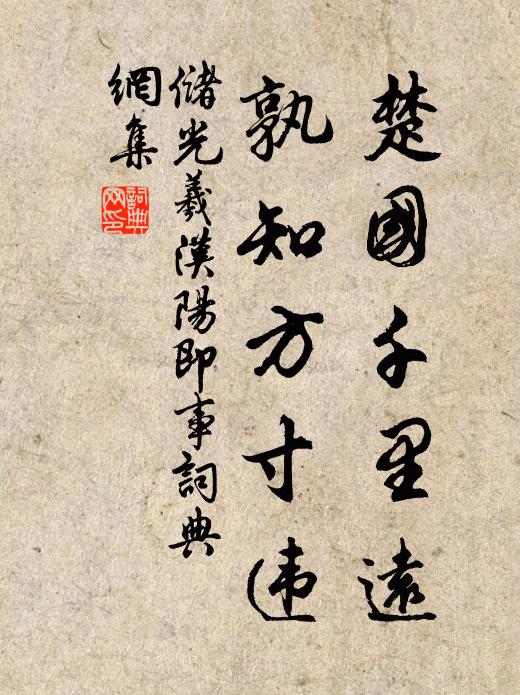 楚國千里遠
孰知方寸违
儲光羲漢陽即事詞典
網集
詞典
网印